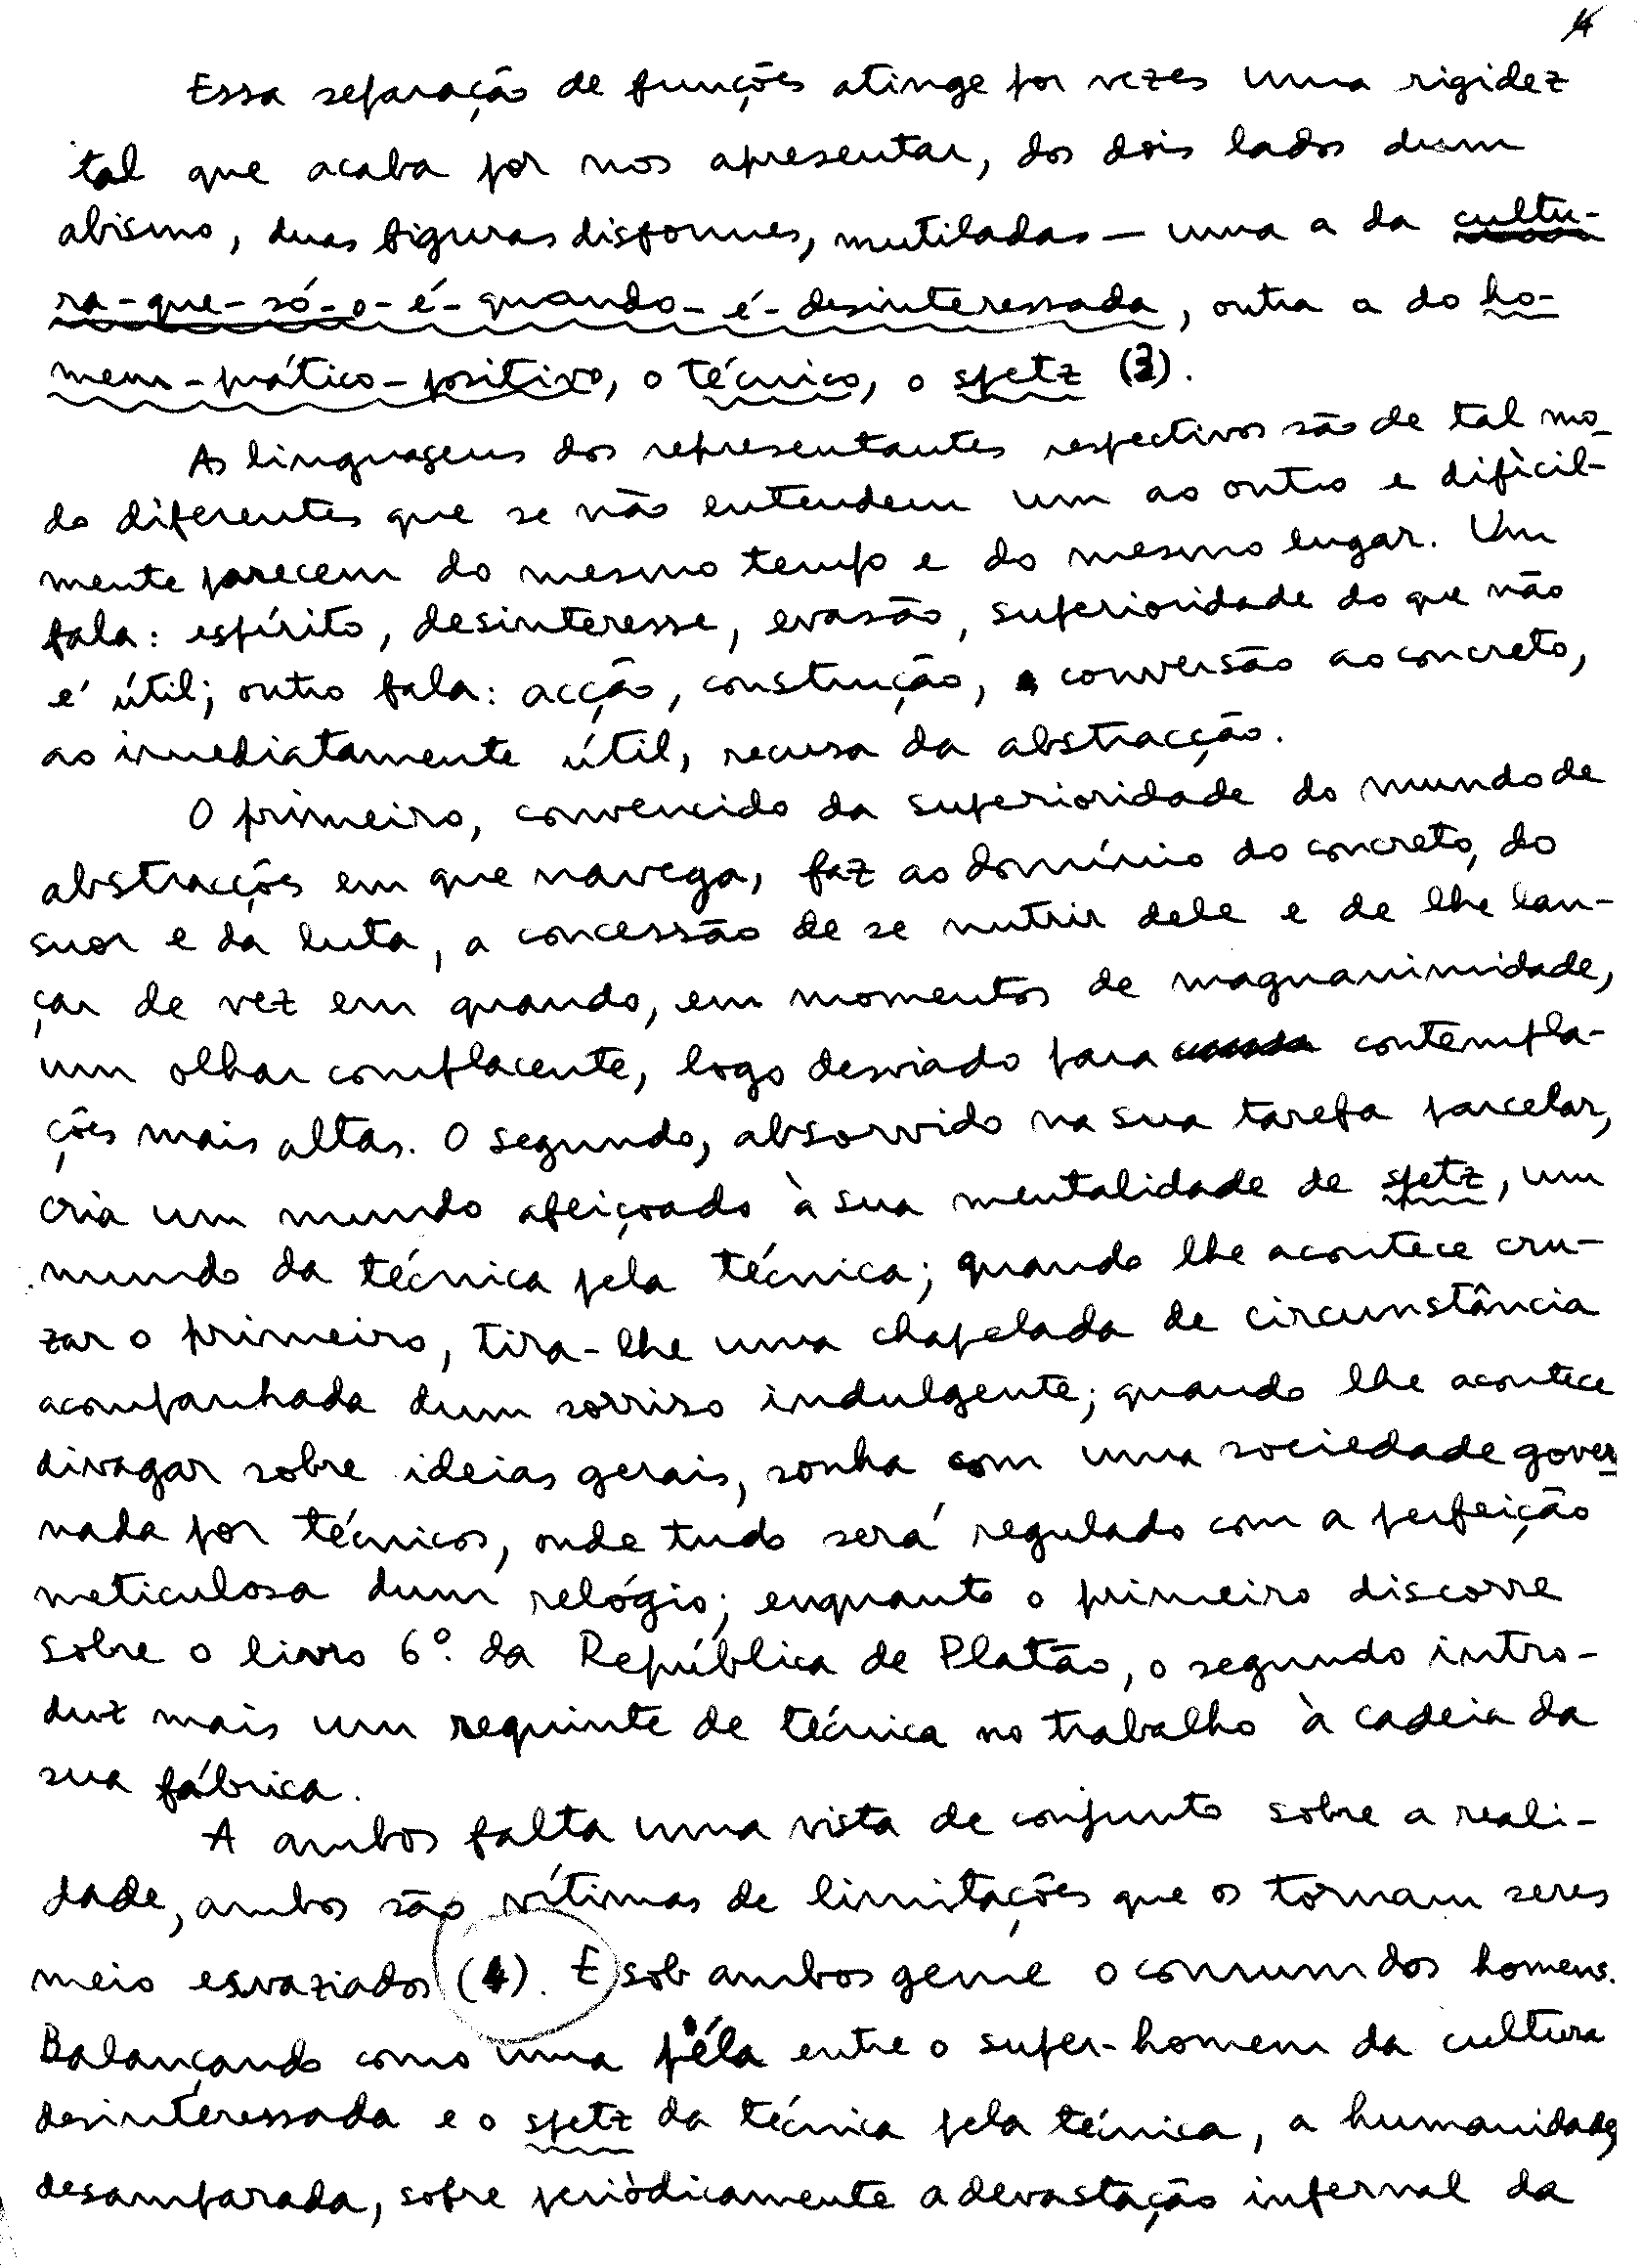 4
Essa separação de funções atinge por vezes uma rigidez
tal que acaba por nos apresentar, dos dois lados dum
abismo, duas figuras disformes, mutiladas — uma a da cultu-
ra-que-só-o-é-quando-é-desinteressada, outra a do ho-
mem-prático-positivo, o técnico, o spetz (3).
As linguagens dos representantes respectivos são de tal mo-
do diferentes que se não entendem um ao outro e dificìl-
mente parecem do mesmo tempo e do mesmo lugar. Um
fala: espírito, desinteresse, evasão, superioridade do que não
é útil; outro fala: acção, construção, conversão ao concreto,
ao imediatamente útil, recusa da abstracção.
O primeiro, convencido da superioridade do mundo de
abstracções em que navega, faz ao domínio do concreto, do
suor e da luta, a concessão de se nutrir dele e de lhe lan-
çar de vez em quando, em momentos de magnanimidade,
um olhar complacente, logo desviado para contempla-
ções mais altas. O segundo, absorvido na sua tarefa parcelar,
cria um mundo afeiçoado à sua mentalidade de spetz, um
mundo da técnica pela técnica; quando lhe acontece cru-
zar o primeiro, tira-lhe uma chapelada de circunstância
acompanhada dum sorriso indulgente; quando lhe acontece
divagar sobre ideias gerais, sonha com uma sociedade gover
nada por técnicos, onde tudo será regulado com a perfeição
meticulosa dum relógio; enquanto o primeiro discorre
sobre o livro 6º. da República de Platão, o segundo intro-
duz mais um requinte de técnica no trabalho à cadeia da
sua fábrica.
A ambos falta uma vista de conjunto sobre a reali-
dade, ambos são vítimas de limitações que os tornam seres
meio esvaziados (4). E sob ambos geme o comum dos homens.
Balançando como uma péla entre o super-homem da cultura
desinteressada e o spetz da técnica pela técnica, a humanidade,
desamparada, sofre periòdicamente a devastação infernal da